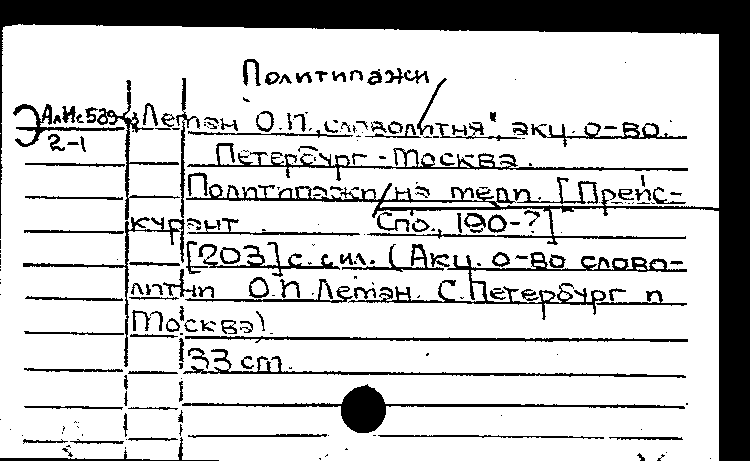 Политипажи
Э АлИс589 Леман О.И., "словолитня", акц. о-во.
2-1 Петербург - Москва.
Политипажи / на меди. [Прейс-
курант Спб., 190-?]
[203] с. с ил. (Акц. о-во слово-
литни О.И. Леман. С. Петербург и
Москва).
33 cm.